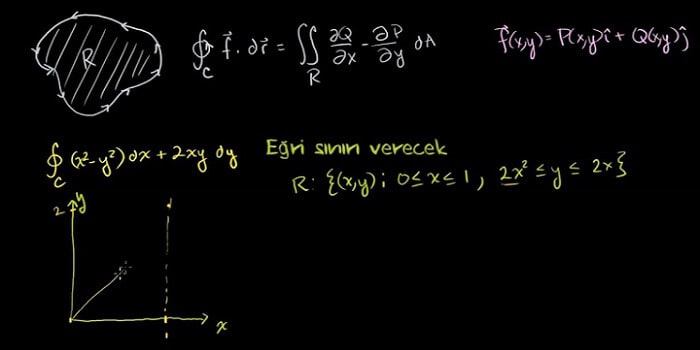 R
∮_C f⃗ · dr⃗ = ∬_R ∂Q/∂x - ∂P/∂y dA
f⃗(x,y) = P(x,y)î + Q(x,y)ĵ
∮_C (x²-y²) dx + 2xy dy
Eğri sınırı verecek
R: {(x,y) ; 0≤x≤1, 2x² ≤ y ≤ 2x}
2 y
x